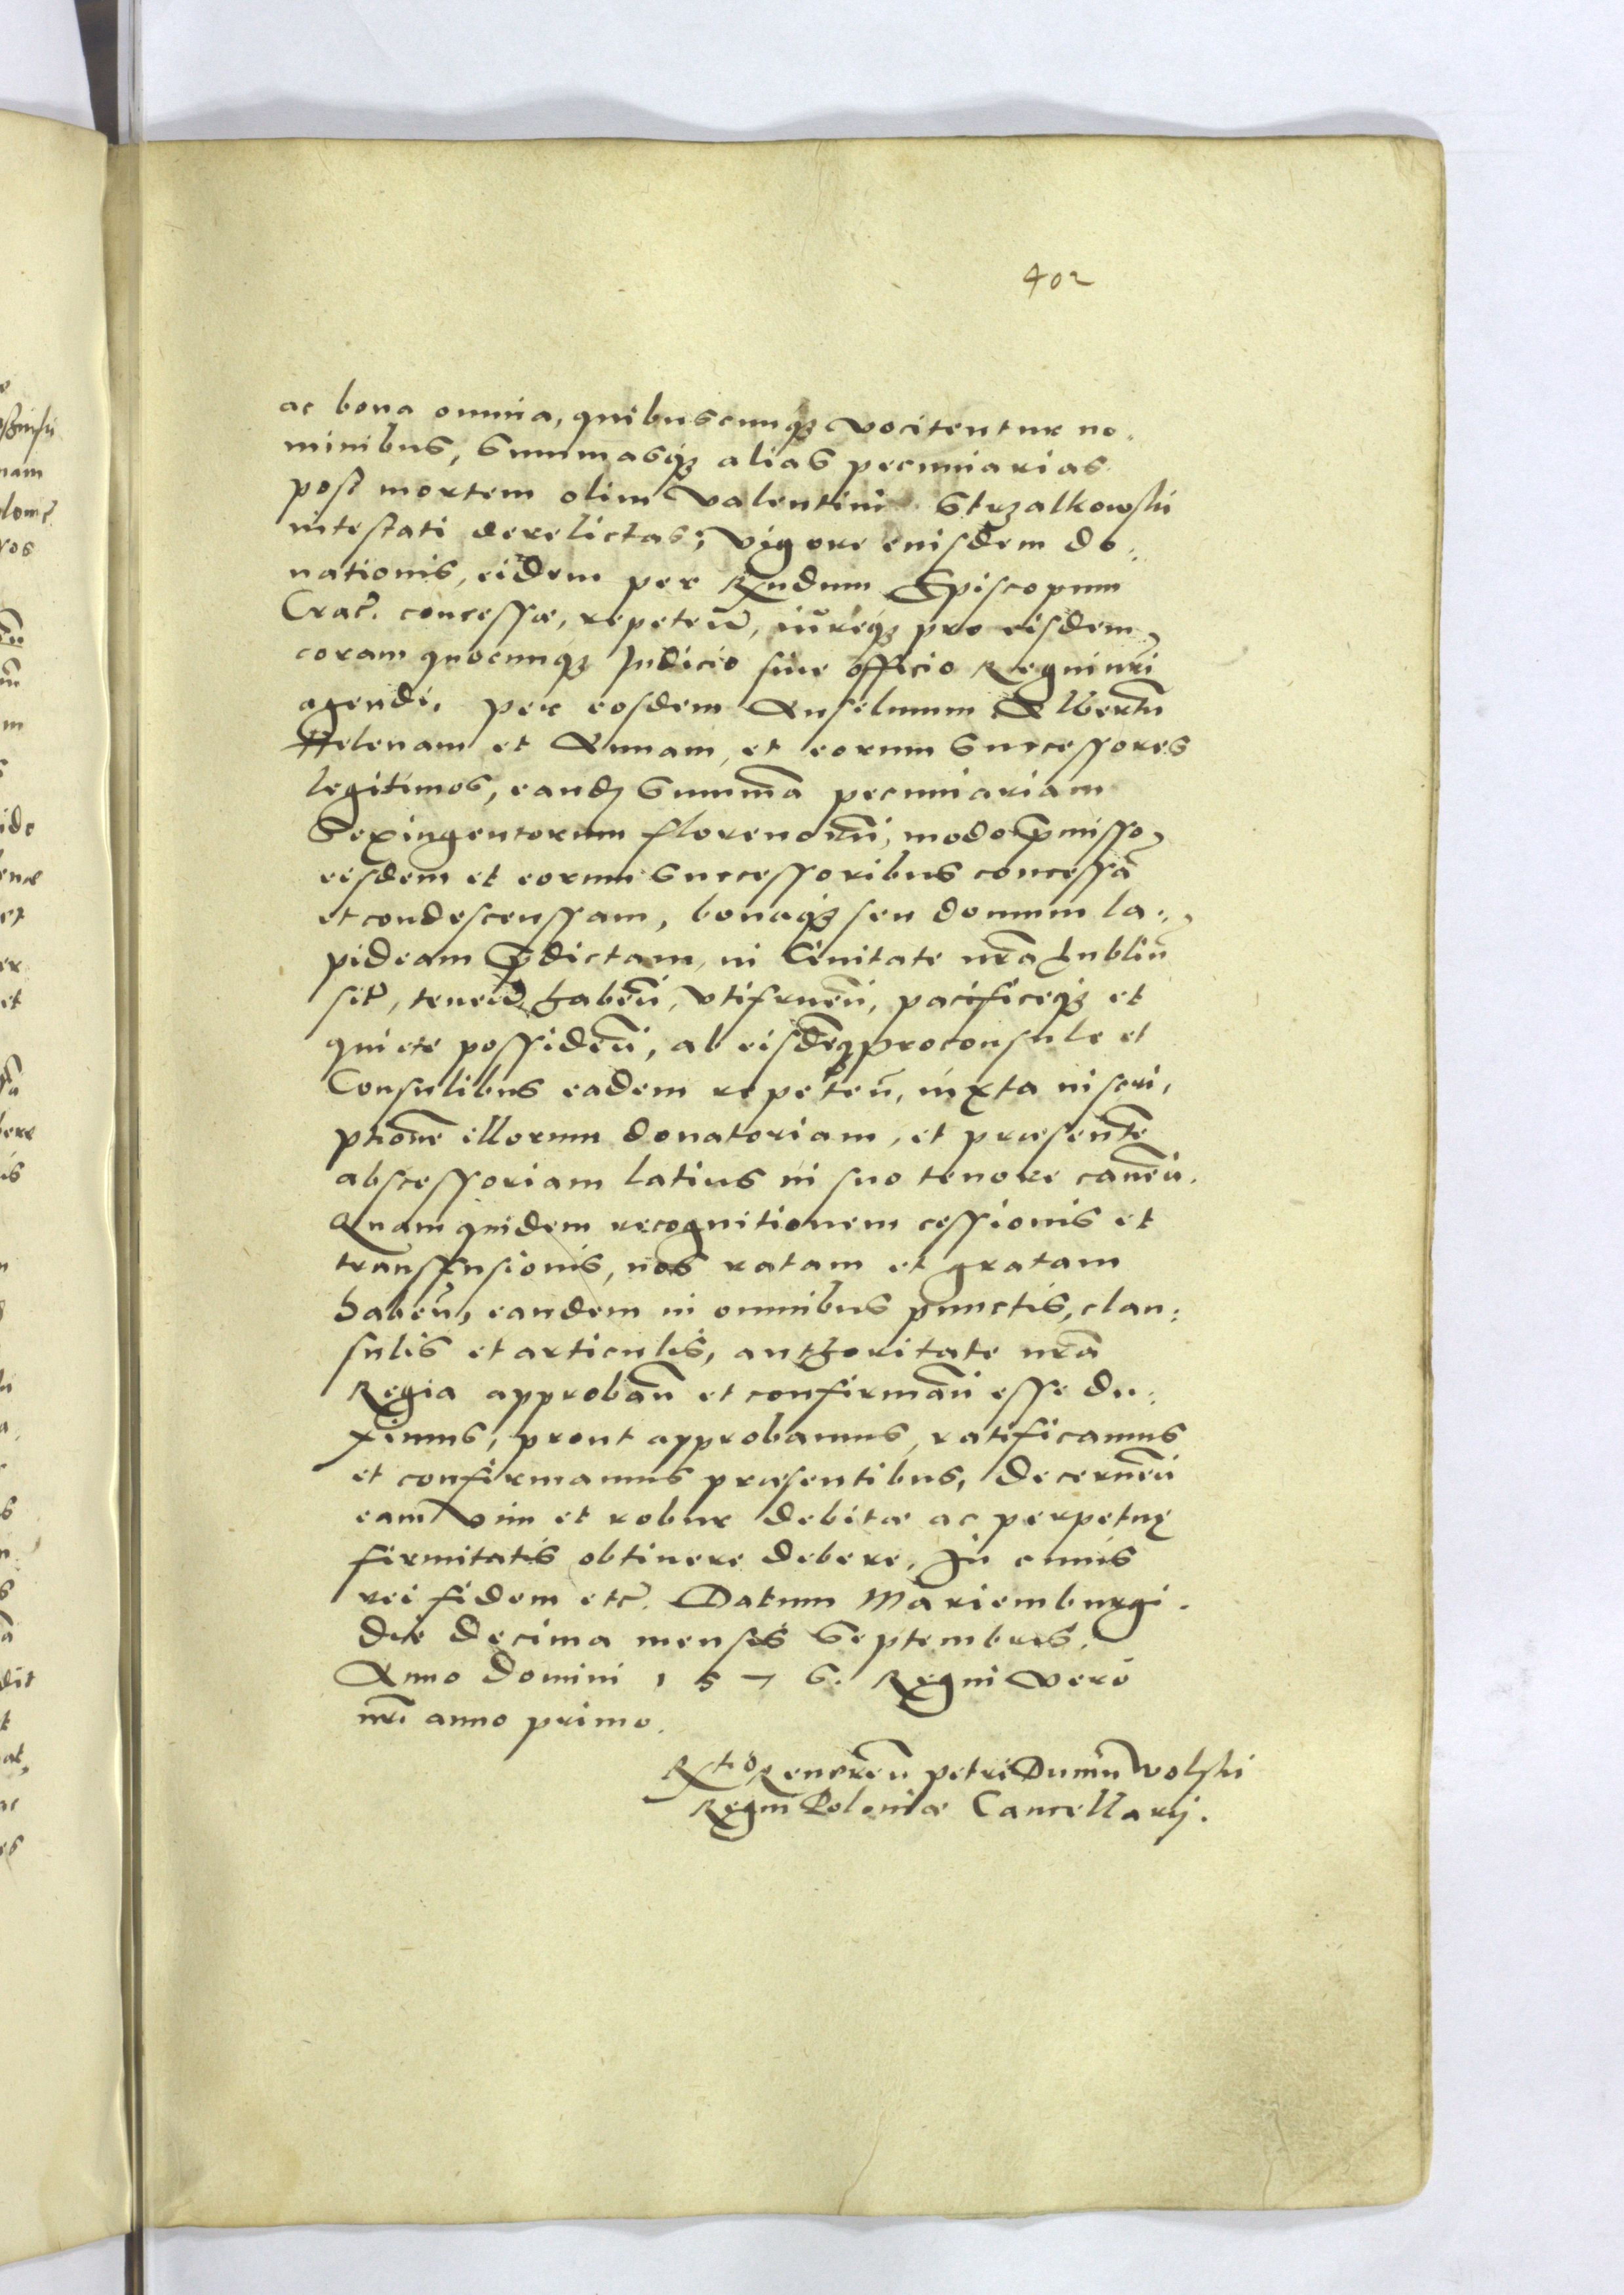 402
ac bona omnia, quibuscunqꝫ vocitentur no.
minibus, Summasqꝫ alias pecuniarias
post mortem olim Valentini Strzalkowski
intestati derelictas; vigore eiusdem do:
nationis, eidem per Rndum Episcopum
Crac̃. concessæ, repeteñ, iureqꝫ pro eisdem
coram quocunqꝫ Judicio siue officio Regni nr̃i
agendi, per eosdem Anselmum Albertũ
Helenam et Annam, et eorum Successores
legitimos, eandꝫ Summã pecuniariam
Sexingentorum florenorũ, modo p̃misso
eisdem et eorum Successoribus concessã
et condescenssam, bonaqꝫ seu domum la:
pideam p̃dictam, in Ciuitate nr̃a Lubliñ
sit̃, teneñ, habeñ, vtifrueñ, pacificeqꝫ et
quiete possideñ, ab eisdẽqꝫ proconsule et
Consulibus eadem repeteñ, iuxta inscri,
ptionẽ illorum donatoriam, et præsentẽ
abscessoriam latius in suo tenore caneñ.
Quam quidem recognitionem cessionis et
transfusionis, nos ratam et gratam
habeñ, eandem in omnibus punctis, clau:
sulis et articulis, authoritate nr̃a
Regia approbañ et confirmañ esse du:
ximus, prout approbamus, ratificamus
et confirmamus præsentibus, decerneñ
eam vim et robur debitæ ac perpetuę
firmitatis obtinere debere. In cuius
rei fidem etc̃. Datum Mariemburgi.
die decima mensis Septembris.
Anno Domini 1576. Regni vero
nr̃i anno primo.
Rtio Reuereñ petri Dunin Wolski
Regni Poloniæ Cancellarij.